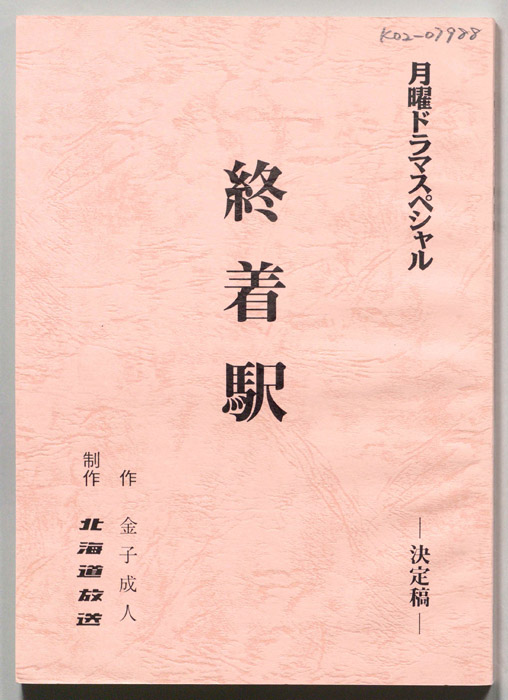 K02-07988
月曜ドラマスペシャル
終着駅
―決定稿―
作 金子成人
制作 北海道放送